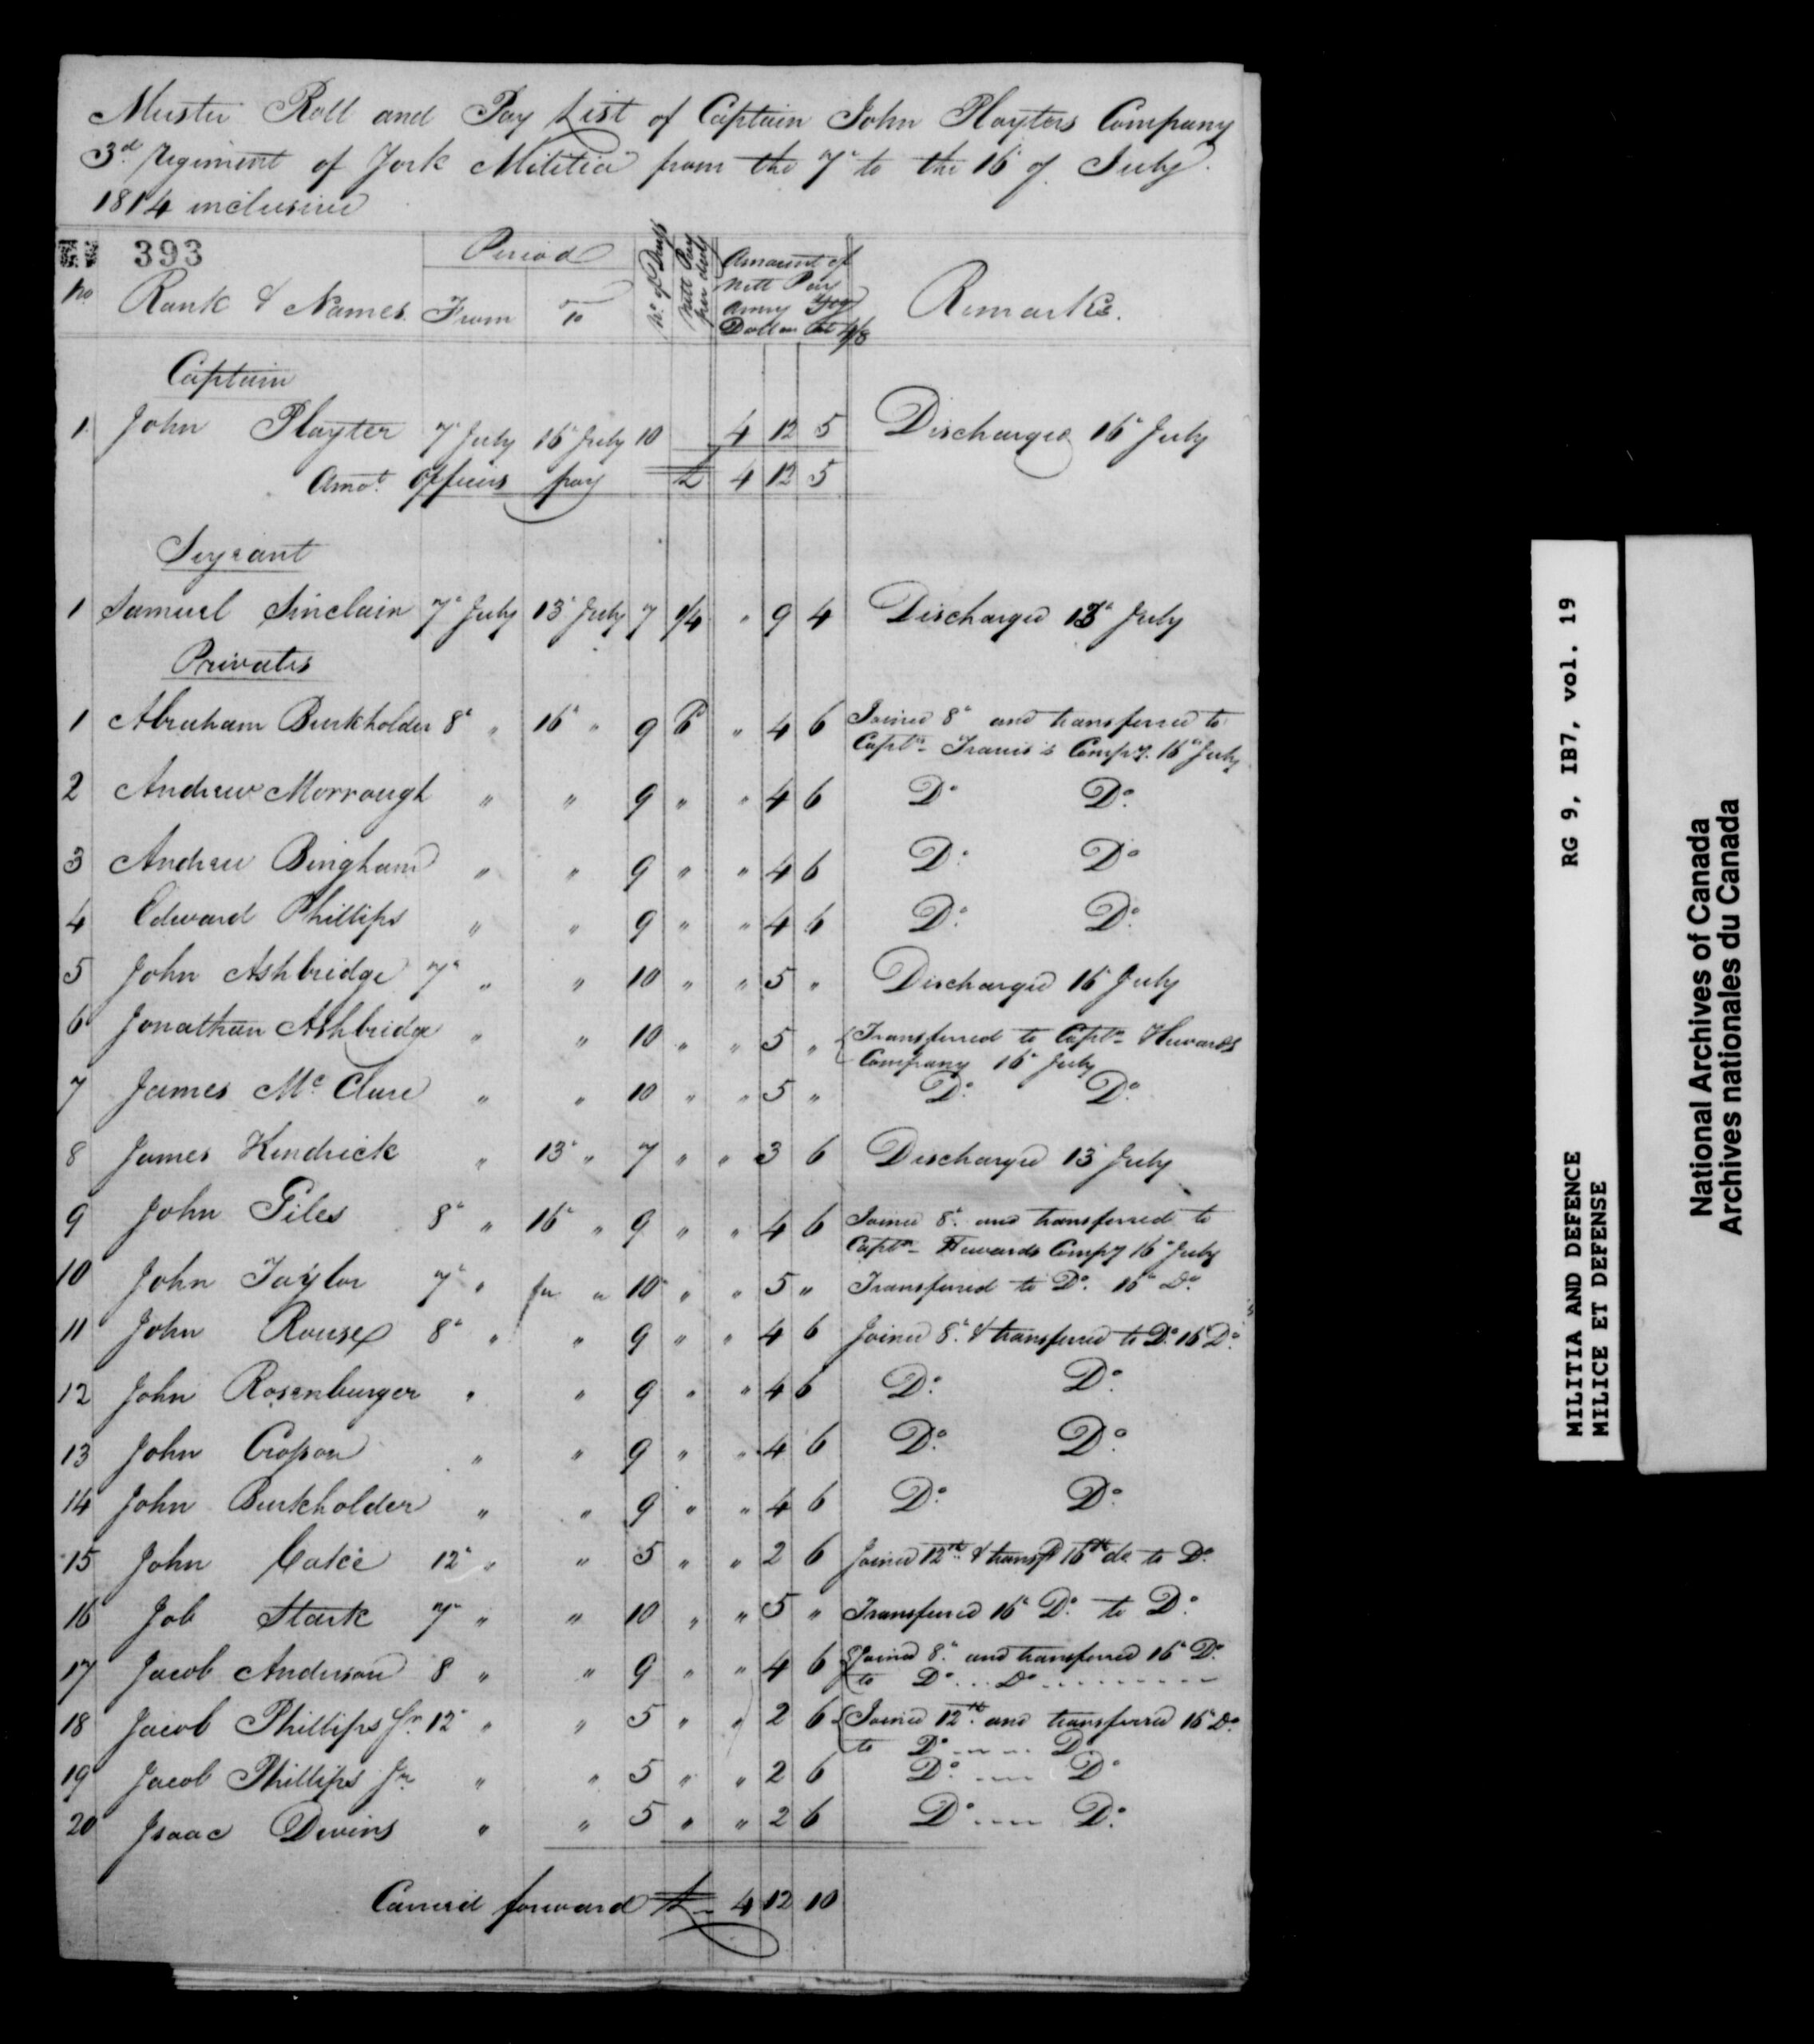 Muster Roll and Pay List of Captain John Playters Company
3d Regiment of York Militia from the 7th to the 16 of July
1814 inclusive
393
No Rank & Names Period From To No. of Days Nett Pay per diem Amount of Nett Pay Army Dollars at 4/8 Remarks.
Captain
1 John Playter 7 July 16 July 10 4 12 5 Discharged 16 July
Amot. Officers pay £ 4 12 5
Sergeant
1 Samuel Sinclain 7 July 13 July 7 1/4 " 9 4 Discharged 13 July
Privates
1 Abraham Burkholder 8 " 16 " 9 6 " 4 6 Joined 8 and transferred to
Captn Travis's Compy. 16 July
2 Andrew Morrough " " 9 " " 4 6 Do Do.
3 Andrew Bingham " " 9 " " 4 6 Do. Do
4 Edward Phillips " " 9 " " 4 6 Do. Do.
5 John Ashbridge 7 " " 10 " " 5 " Discharged 16 July
6 Jonathan Ashbridge " " 10 " " 5 " Transferred to Captn Hewards
Company 16 July
7 James Mc Clure " " 10 " " 5 " Do. Do.
8 James Kendrick " 13 " 7 " " 3 6 Discharged 13 July
9 John Giles 8 " 16 " 9 " " 4 6 Joined 8. and transferred to
Captn Hewards Compy 16 July
10 John Taylor 7 " " 10 " " 5 " Transferred to Do. 16 Do.
11 John Rouse 8 " " 9 " " 4 6 Joined 8. & transferred to Do. 16 Do.
12 John Rosenburger " " 9 " " 4 6 Do. Do.
13 John Crosson " " 9 " " 4 6 Do. Do.
14 John Burkholder " " 9 " " 4 6 Do. Do.
15 John 12 " " 5 " " 2 6 Joined 12th. & transfd 16th do to Do.
16 Job Stark 7 " " 10 " " 5 " Transferred 16 Do. to Do.
17 Jacob Anderson 8 " " 9 " " 4 6 Joined 8. and transferred 16 Do.
to Do ... Do
18 Jacob Phillips Sr. 12 " " 5 " " 2 6 Joined 12th. and transferred 16 Do.
to Do. Do.
19 Jacob Phillips Jr. " " 5 " " 2 6 Do. Do
20 Isaac Devins " " 5 " " 2 6 Do. Do.
Carried forward £ 4 12 10
MILITIA AND DEFENCE RG 9, IB7, vol. 19
MILICE ET DEFENSE
National Archives of Canada
Archives nationales du Canada